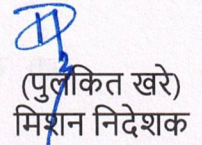 (पुलकित खरे)
मिशन निदेशक